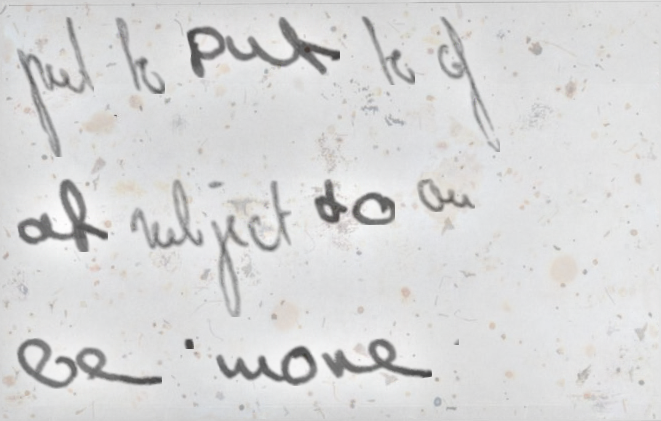 put to put to of
at subject to on
be " more "